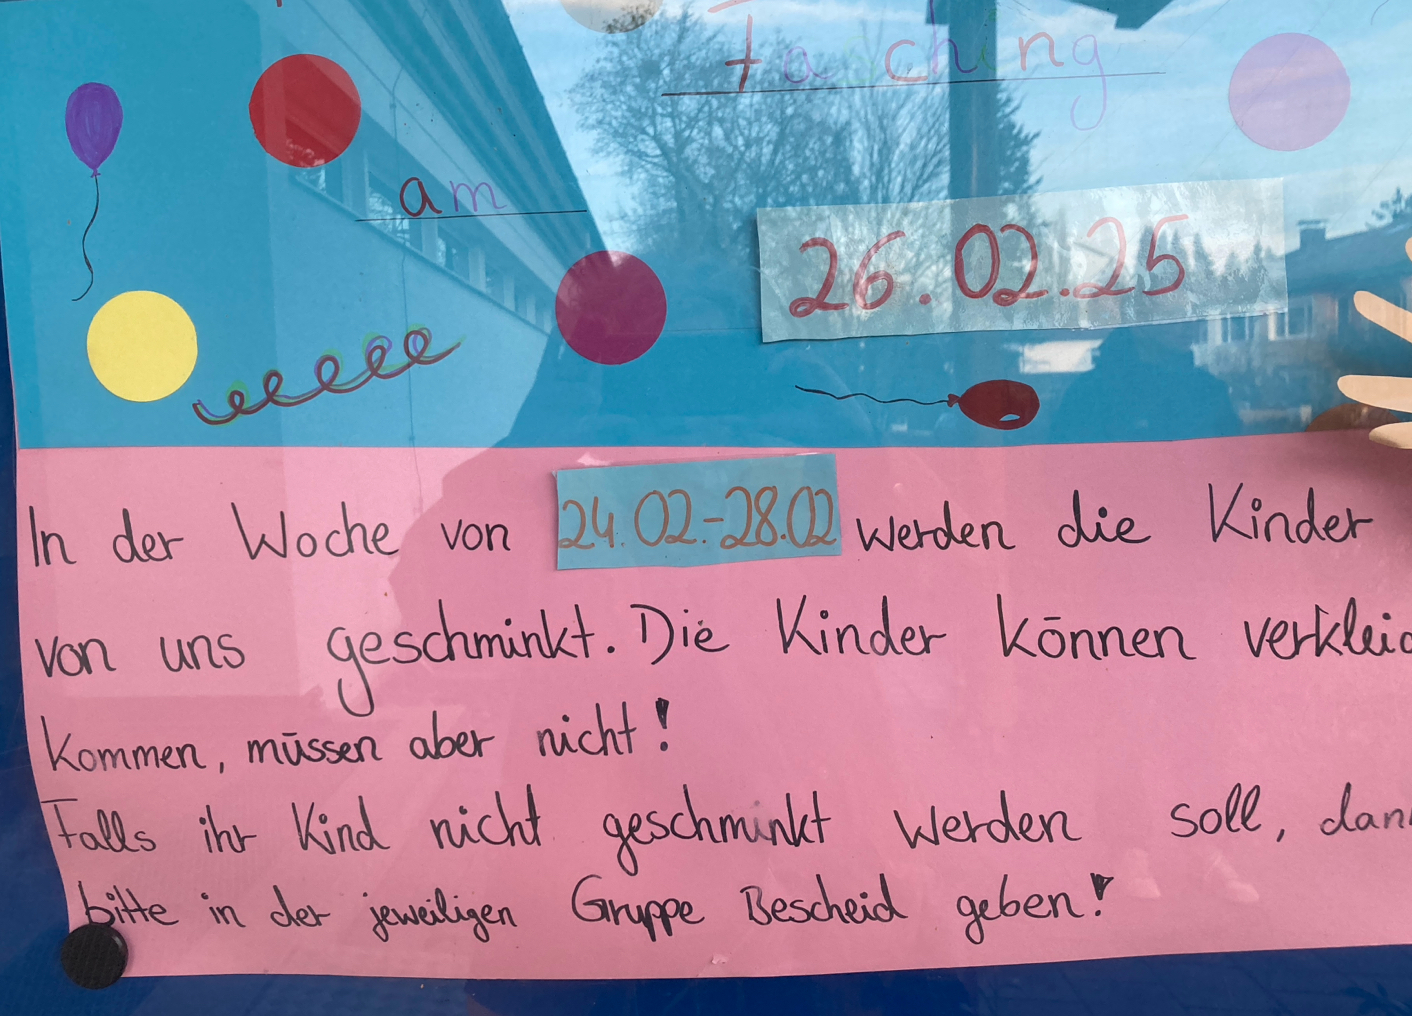 Fasching
am 26.02.25
In der Woche von 24.02.-28.02 werden die Kinder
von uns geschminkt. Die Kinder können verkleid
kommen, müssen aber nicht!
Falls ihr Kind nicht geschminkt werden soll, dann
bitte in der jeweiligen Gruppe Bescheid geben!